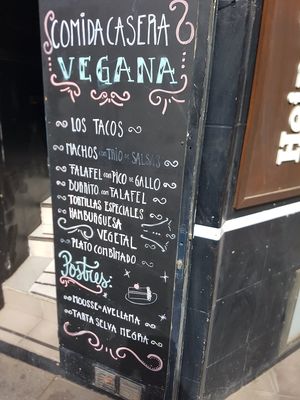 COMIDA CASERA
VEGANA
LOS TACOS
NACHOS CON TRÍO DE SALSAS
FALAFEL CON PICO DE GALLO
BURRITO CON FALAFEL
TORTILLAS ESPECIALES
HAMBURGUESA
VEGETAL
PLATO COMBINADO
Postres:
MOUSSE DE AVELLANA
TARTA SELVA NEGRA